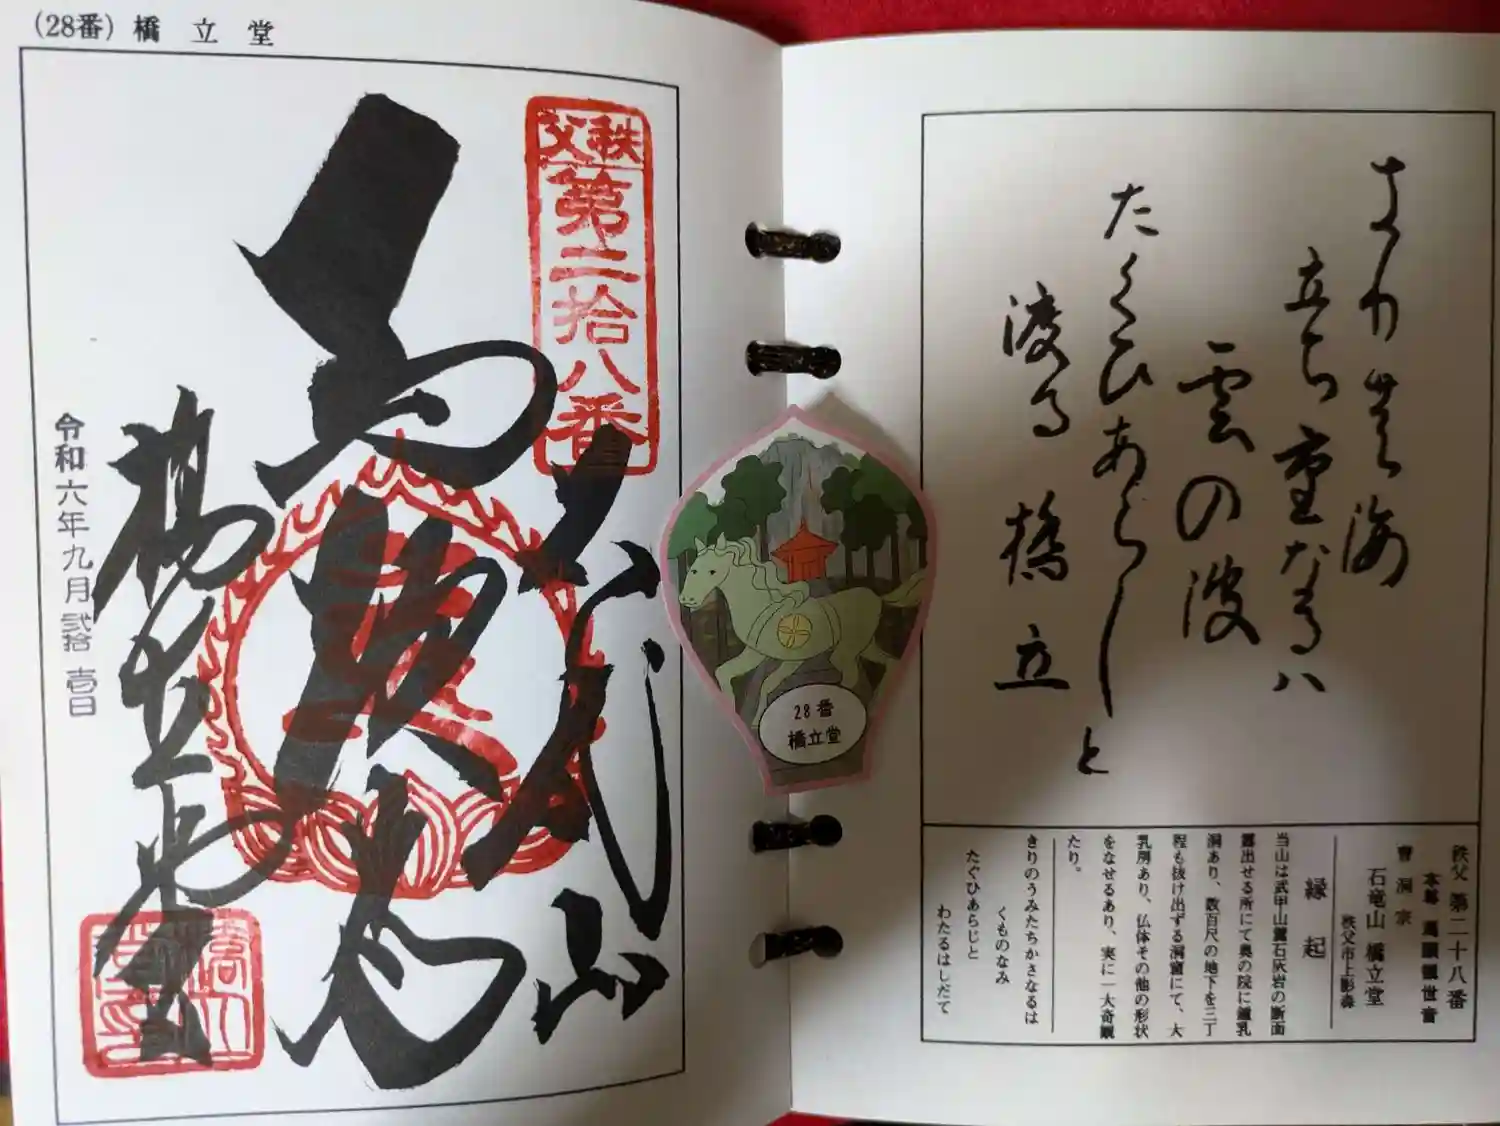 (28番) 橋立堂
秩父
第二拾八番
石龍山
馬頭尊
橋立堂
令和六年九月弐拾壱日
28番
橋立堂
立ち重なるハ
雲の波
たくひあらしと
渡る橋立
秩父 第二十八番
本尊 馬頭観世音
曹洞宗
石竜山 橋立堂
秩父市上影森
縁起
当山は武甲山麓石灰岩の断面
露出せる所にて奥の院に鍾乳
洞あり、数百尺の地下を三丁
程も抜け出ずる洞窟にて、大
乳房あり、仏体その他の形状
をなせるあり、実に一大奇観
たり。
きりのうみたちかさなるは
くものなみ
たぐひあらじと
わたるはしだて